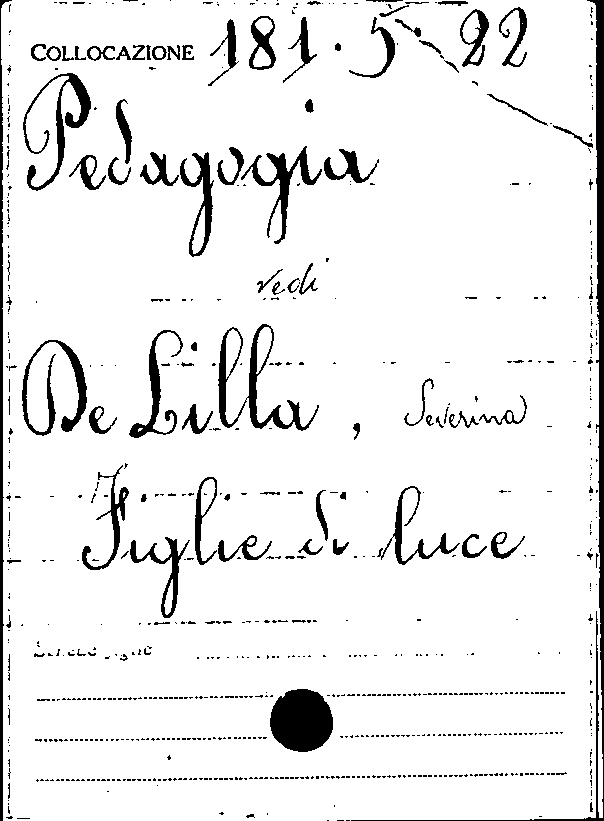 COLLOCAZIONE 181.5.22
Pedagogia
vedi
De Lilla, Severina
Figlie di luce